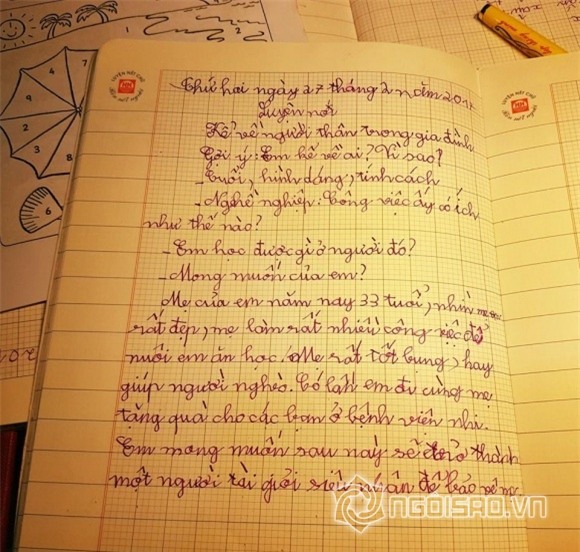 Thứ hai ngày 27 tháng 2 năm 201
Luyện nói
Kể về người thân trong gia đình
Gợi ý: Em kể về ai? Vì sao?
- Tuổi, hình dáng, tính cách
- Nghề nghiệp: Công việc ấy có ích
như thế nào?
- Em học được gì ở người đó?
- Mong muốn của em?
Mẹ của em năm nay 33 tuổi, nhìn mẹ em
rất đẹp, mẹ làm rất nhiều công việc để
nuôi em ăn học. Mẹ rất tốt bụng, hay
giúp người nghèo. Có lần em đi cùng mẹ
tặng quà cho các bạn ở bệnh viện nhi.
Em mong muốn sau này sẽ trở thành
một người tài giỏi siêu nhân để bảo vệ mẹ
LUYỆN NÉT CHỮ
Rèn nết người
LUYỆN NÉT CHỮ
Rèn nết người
9
8
7
1
2
3
4
6
NGOISAO.VN